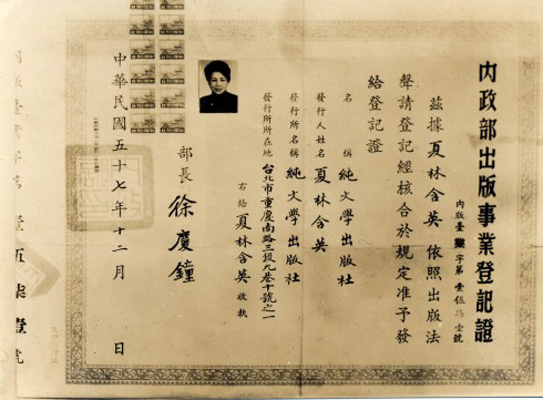 內政部出版事業登記證
內版臺業字第壹伍柒壹號
茲據夏林含英依照出版法
聲請登記經核合於規定准予發
給登記證
名稱 純文學出版社
發行人姓名 夏林含英
發行所名稱 純文學出版社
發行所所在地 台北市重慶南路三段九巷十號之一
右給夏林含英收執
部長 徐慶鐘
中華民國五十七年十二月 日